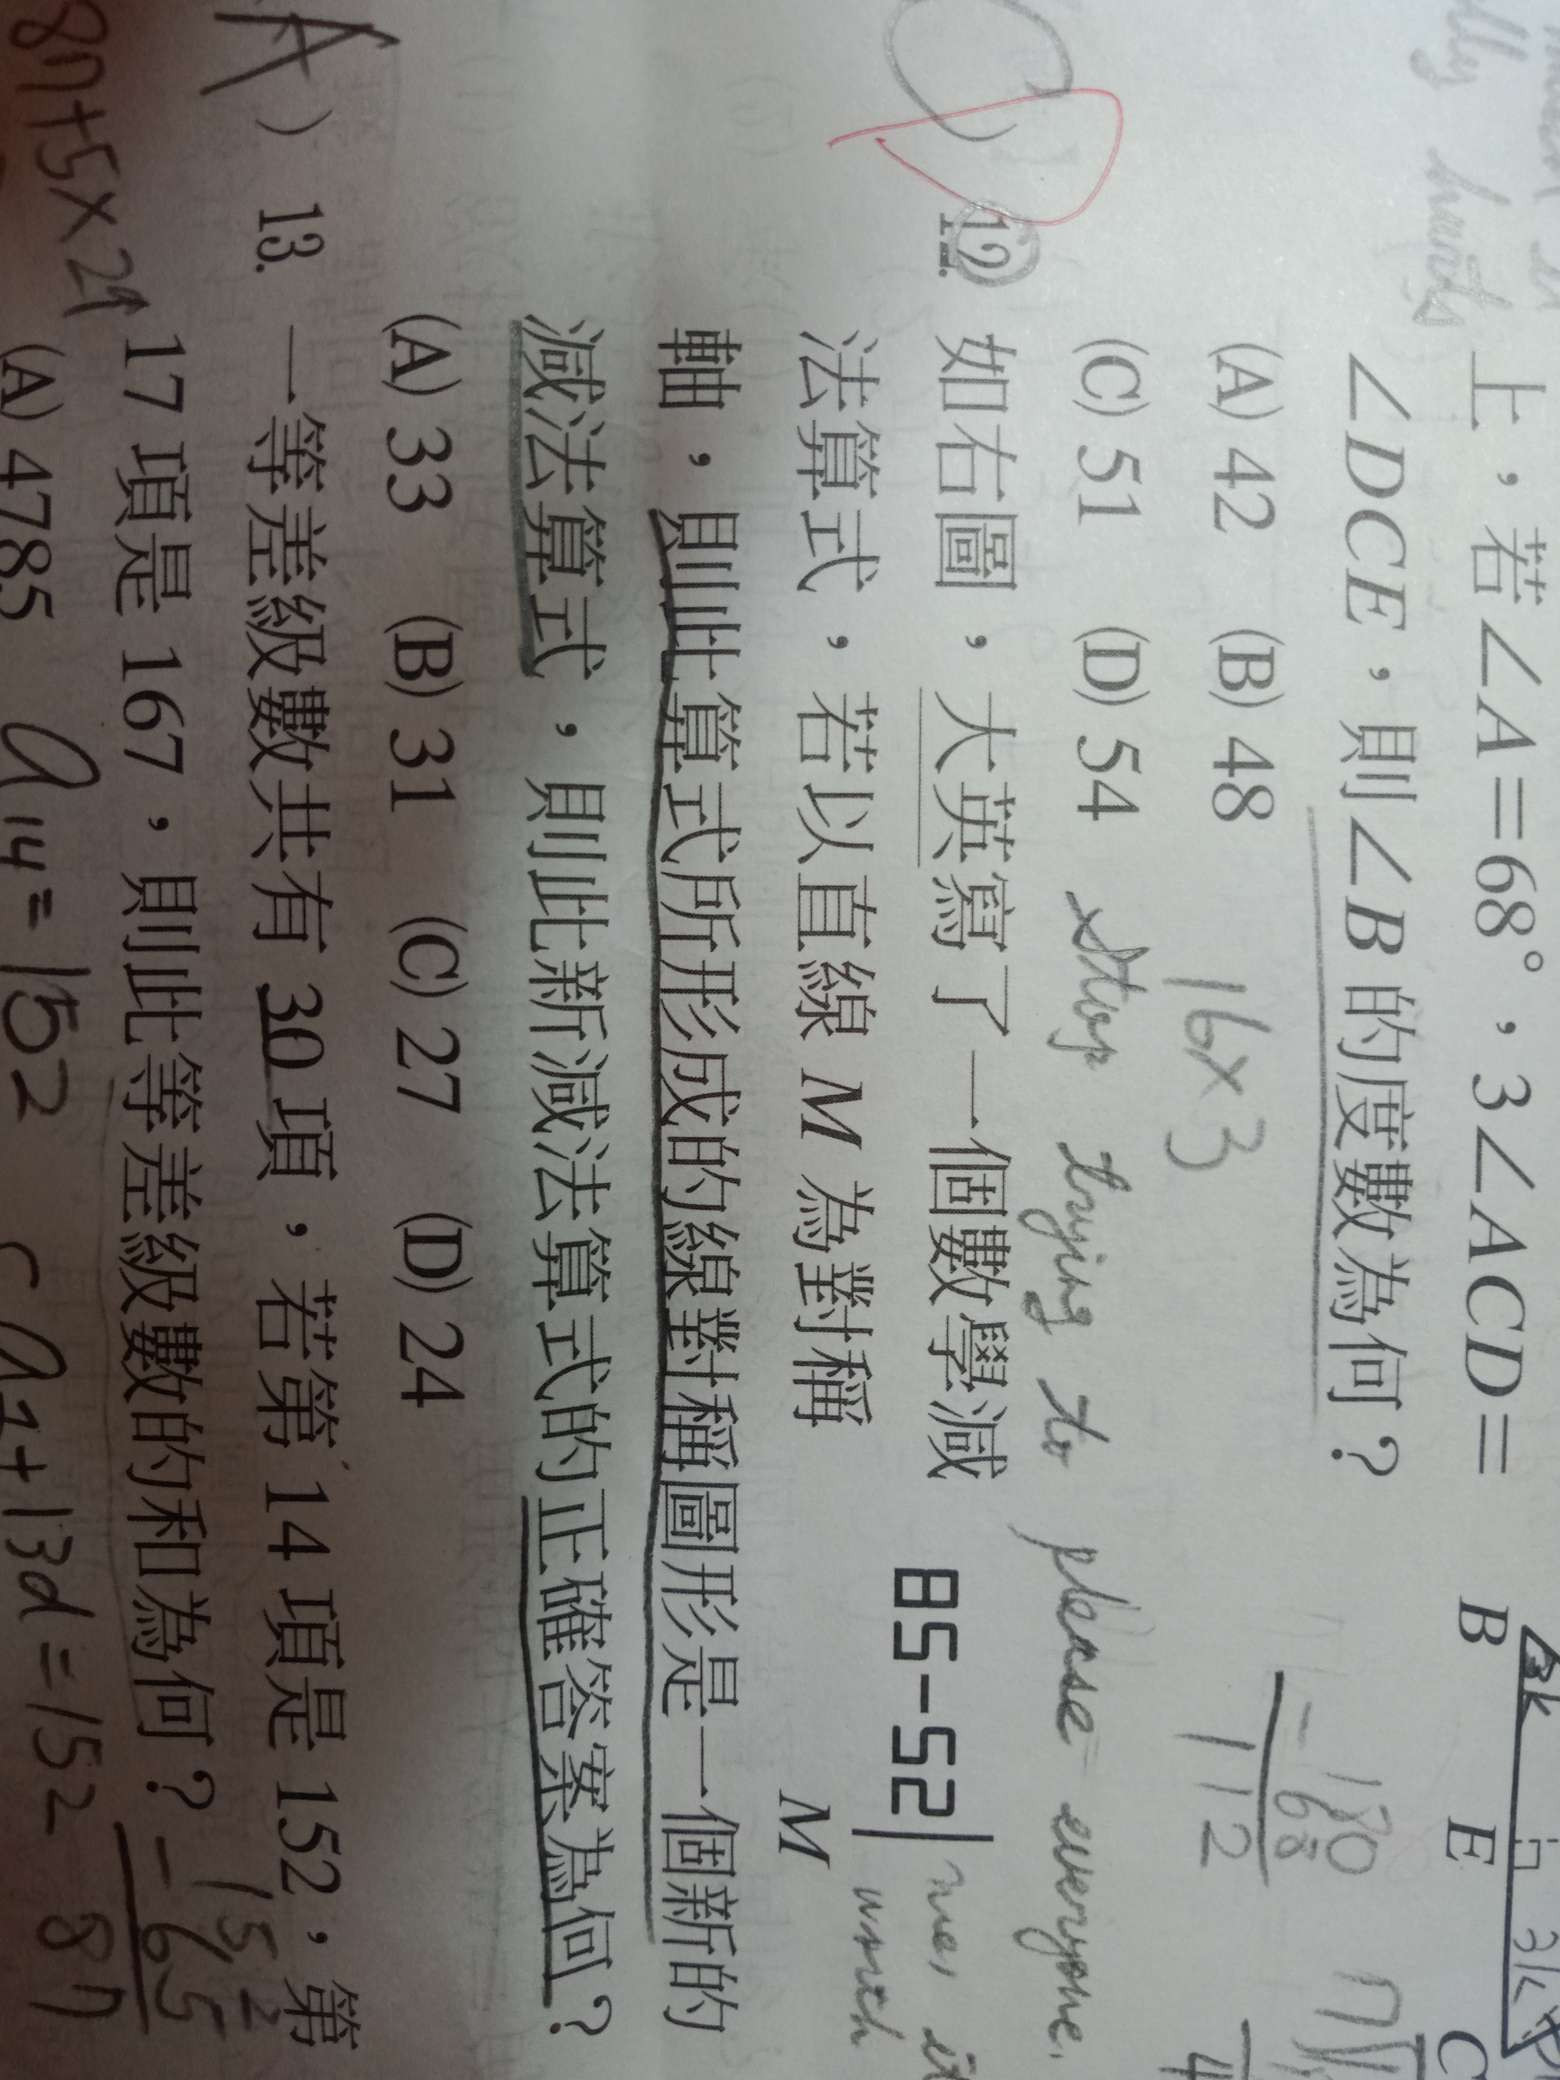 lly hunts
上，若∠A＝68°，3∠ACD＝
∠DCE，則∠B 的度數為何？
(A) 42 (B) 48
(C) 51 (D) 54
16×3
180
－ 68
112
B 3k E 3k C
stop trying to please everyone.
12. 如右圖，大英寫了一個數學減
法算式，若以直線 M 為對稱
軸，則此算式所形成的線對稱圖形是一個新的
減法算式，則此新減法算式的正確答案為何？
85-52
M
(A) 33 (B) 31 (C) 27 (D) 24
A ) 13. 一等差級數共有 30 項，若第 14 項是 152，第
17 項是 167，則此等差級數的和為何？
(A) 4785
152
－ 65
87
87+5×29
a14=152
a1+13d=152
87